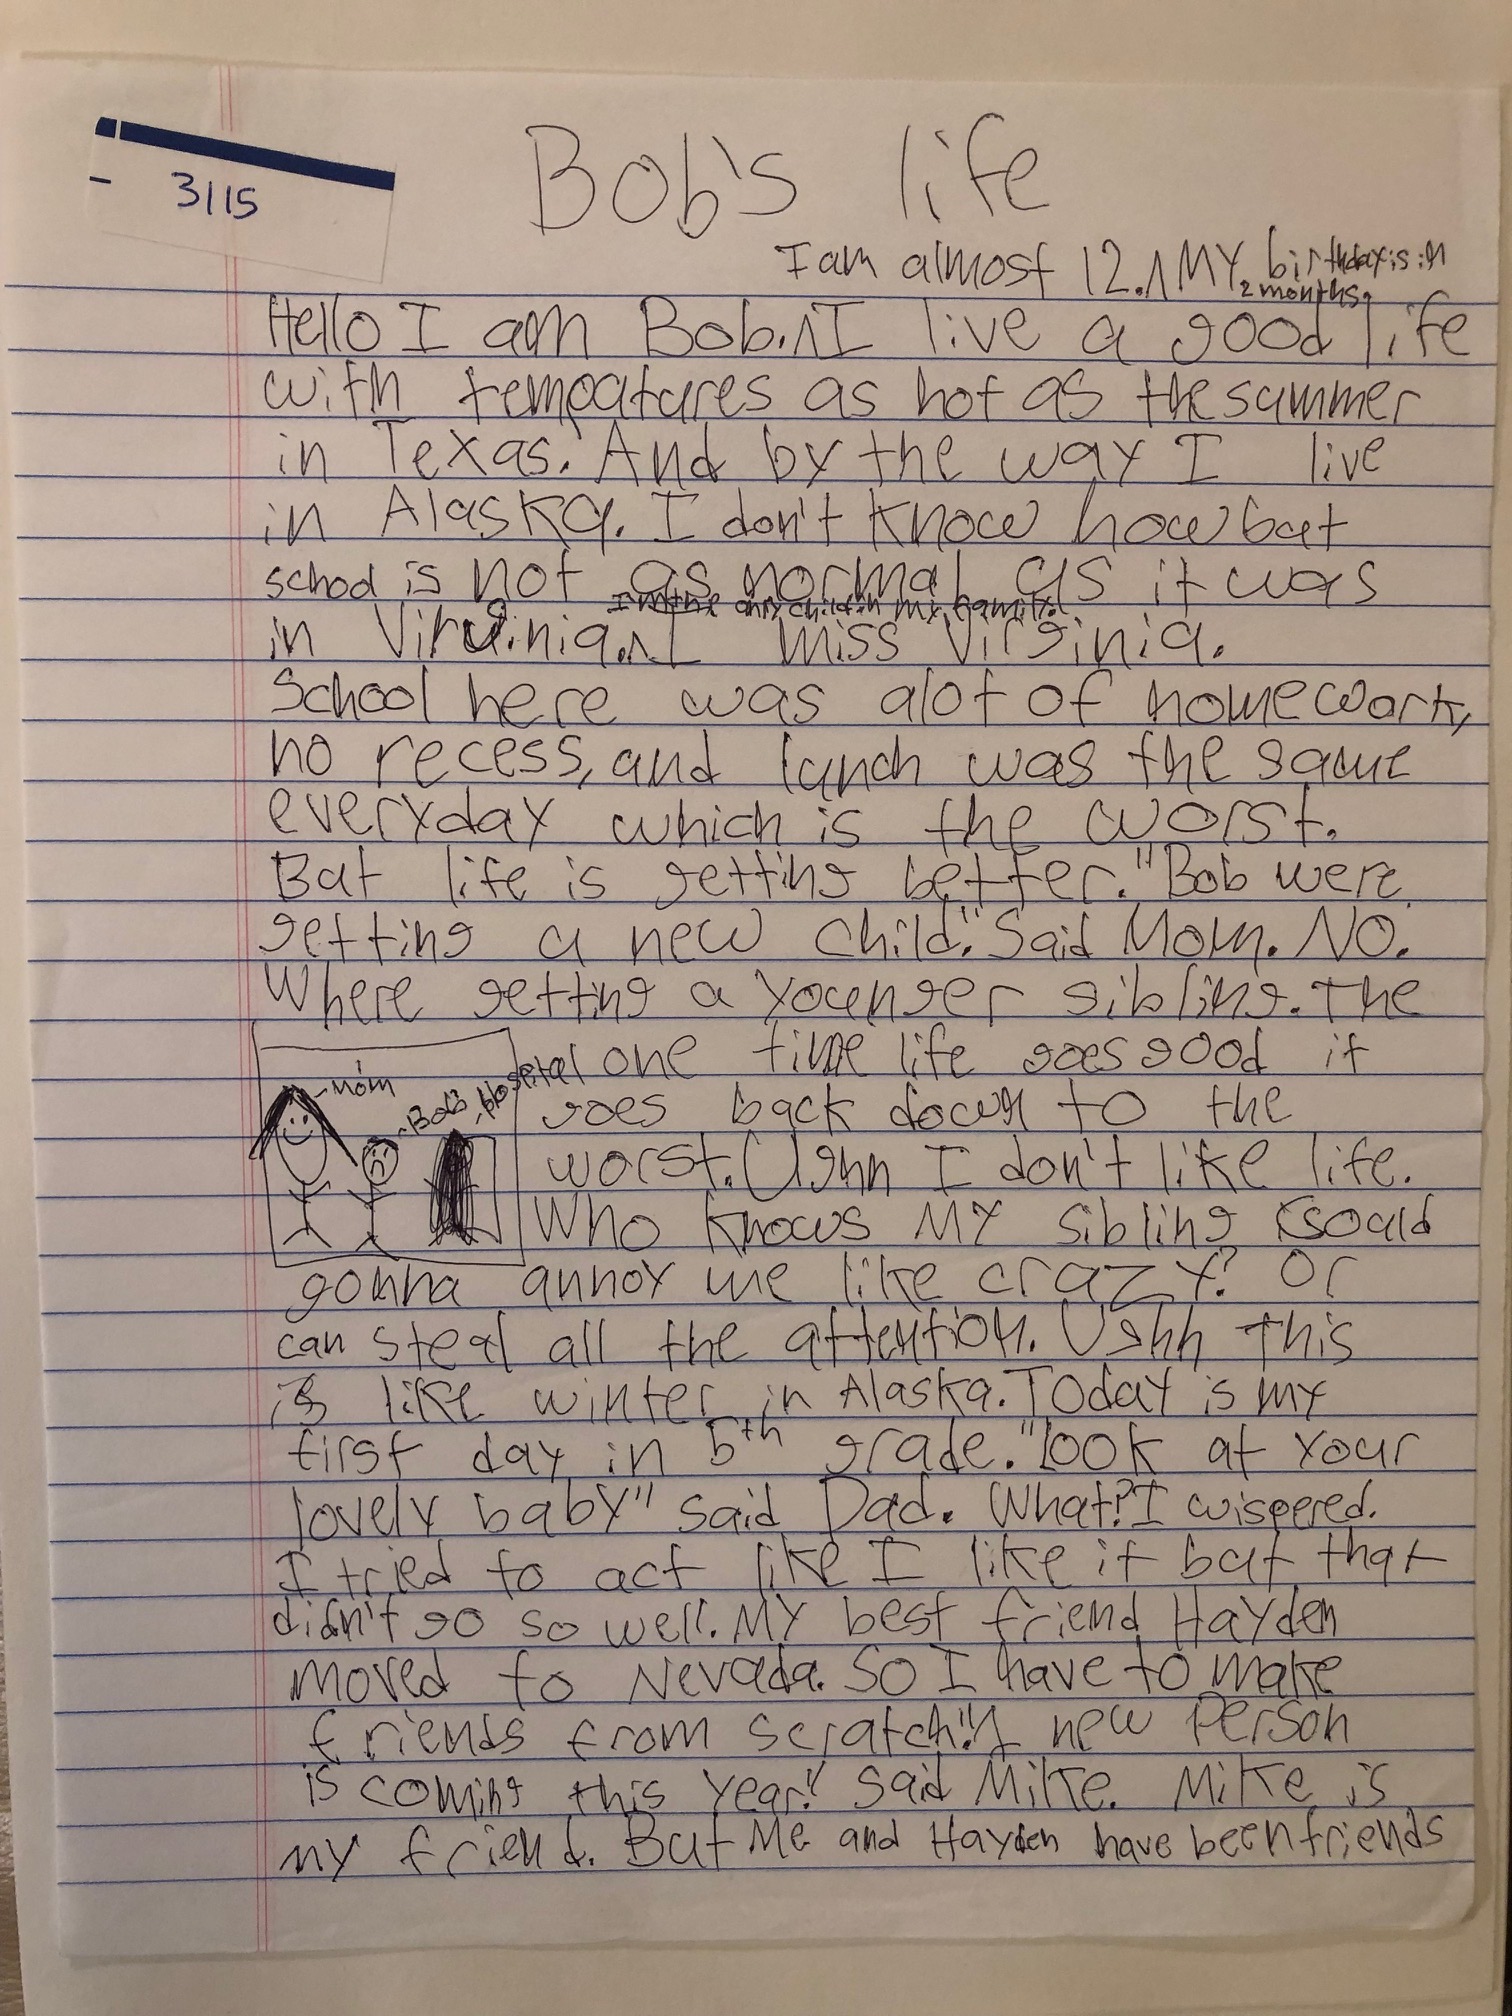 3/15
Bob's life
I am almost 12. ^ My birthday is in
2 months.
Hello I am Bob. ^ I live a good life
with tempatures as hot as the summer
in Texas. And by the way I live
in Alaska. I don't know how but
school is not as normal as it was
I'm the only child in my family.
in Virginia. ^ I miss Virginia.
School here was alot of homework,
no recess, and lunch was the same
everyday which is the worst.
But life is getting better. "Bob were
getting a new child." Said Mom. NO.
Where getting a younger sibling. The
one time life goes good it
Mom
Bob
Hospital
goes back down to the
worst. Ughh I don't like life.
Who knows My sibling could
gonna annoy me like crazy? Or
can steal all the attention. Ughh This
is like winter in Alaska. Today is my
first day in 5th grade. "look at your
lovely baby" said Dad. What? I wispered.
I tried to act like I like it but that
didn't go so well. My best friend Hayden
moved to Nevada. So I have to make
friends from scratch! "A new Person
is coming this year!" Said Mike. Mike is
my friend. But Me and Hayden have been friends